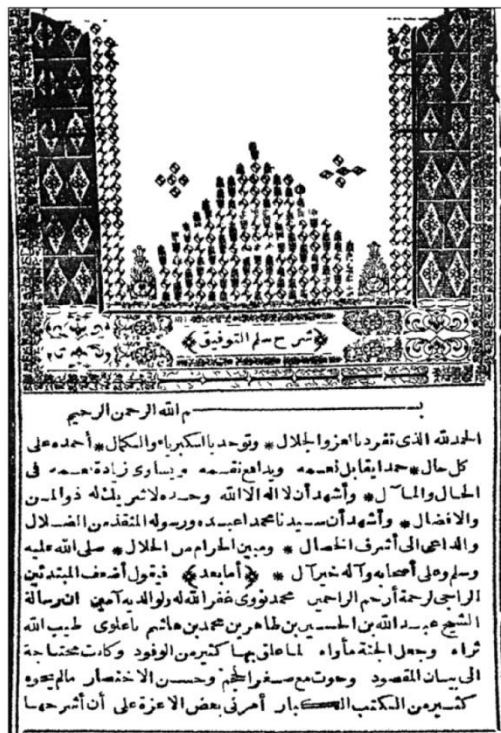 ﴿شرح سلم التوفيق﴾
بسم الله الرحمن الرحيم
الحمد لله الذى تفرد بالعز والجلال * وتوحد بالكبرياء والكمال * أحمده على
كل حال * حمدا يقابل نعمه ويدافع نقمه ويساوى زيادة نعمه فى
الحال والمآل * وأشهد أن لا اله الا الله وحده لا شريك له ذو المن
والافضال * وأشهد أن سيدنا محمدا عبده ورسوله المنقذ من الضلال
والداعى الى أشرف الخصال * ومبين الحرام من الحلال * صلى الله عليه
وسلم وعلى أصحابه وآله خير آل * ﴿أما بعد﴾ فيقول أضعف المبتدئين
الراجى لرحمة أرحم الراحمين محمد نووى غفر الله له ولوالديه آمين ان رسالة
الشيخ عبد الله بن الحسين بن طاهر بن محمد بن هاشم باعلوى طيب الله
ثراه وجعل الجنة مأواه لما علق بها كثير من الوفود وكانت محتاجة
الى بيان المقصود وحوت مع صغر الحجم وحسن الاختصار مالم يحوه
كثير من الكتب الكبار أمرنى بعض الاعزة على أن أشرحها